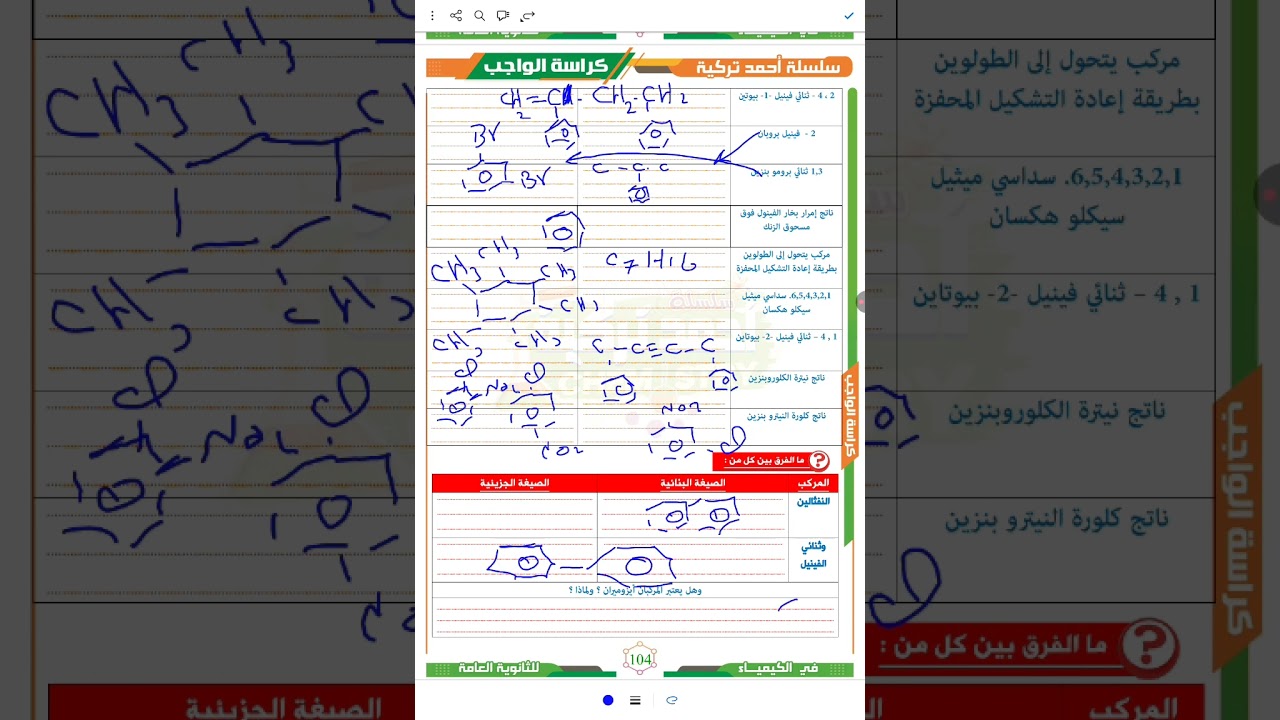 في الكيمياء
للثانوية العامة
سلسلة أحمد تركية
كراسة الواجب
2 ، 4 - ثنائي فينيل -1- بيوتين
CH2 = CH - CH2 - CH2
2 - فينيل بروبان
Br
1,3 ثنائي برومو بنزين
Br
C - C - C
ناتج إمرار بخار الفينول فوق
مسحوق الزنك
مركب يتحول إلى الطولوين
بطريقة إعادة التشكيل المحفزة
C7H16
6,5,4,3,2,1. سداسي ميثيل
سيكلو هكسان
CH3
CH3
CH3
CH3
CH3
CH3
1 , 4 - ثنائي فينيل -2- بيوتاين
C - C ≡ C - C
ناتج نيترة الكلوروبنزين
Cl
Cl
NO2
ناتج كلورة النيترو بنزين
NO2
Cl
ما الفرق بين كل من :
المركب
الصيغة البنائية
الصيغة الجزيئية
النفثالين
وثنائي
الفينيل
وهل يعتبر المركبان أيزوميران ؟ ولماذا ؟
كراسة الواجب
في الكيمياء
104
للثانوية العامة
مركب يتحول إلى الطولوين
بطريقة إعادة التشكيل المحفزة
6,5,4,3,2,1. سداسي ميثيل
سيكلو هكسان
1 , 4 - ثنائي فينيل -2- بيوتاين
ناتج نيترة الكلوروبنزين
ناتج كلورة النيترو بنزين
ما الفرق بين كل من :
المركب
الصيغة البنائية
الصيغة الجزيئية
كراسة الواجب